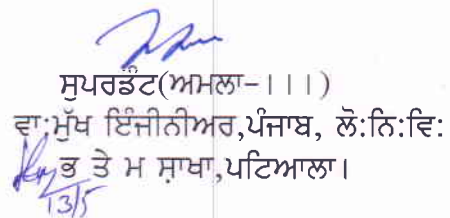 ਸੁਪਰਡੈਂਟ(ਅਮਲਾ-।।।)
ਵਾ:ਮੁੱਖ ਇੰਜੀਨੀਅਰ,ਪੰਜਾਬ, ਲੋ:ਨਿ:ਵਿ:
ਭ ਤੇ ਮ ਸ਼ਾਖਾ,ਪਟਿਆਲਾ।
13/5